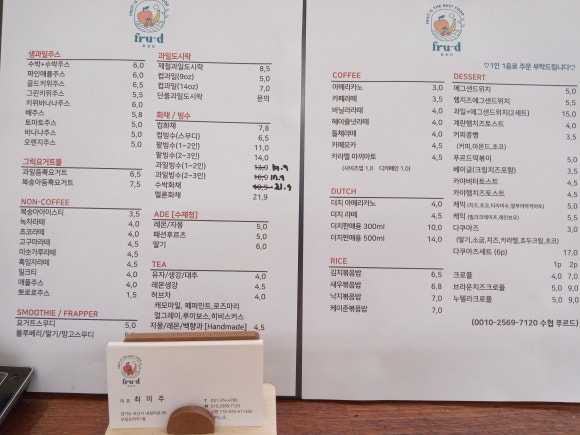 FRUIT IS THE BEST FOOD
fru-d
푸르드
생과일주스
수박+수박주스 6,0
파인애플주스 6,0
골드키위주스 6,5
그린키위주스 5,5
키위바나나주스 6,0
배주스 5,8
토마토주스 5,0
바나나주스 5,0
오렌지주스 5,0
그릭요거트볼
과일듬뿍요거트 6,5
복숭아듬뿍요거트 7,5
NON-COFFEE
복숭아아이스티 3,5
녹차라떼 4,0
초코라떼 4,0
고구마라떼 4,5
미숫가루라떼 4,5
흑임자라떼 4,5
밀크티 4,0
애플주스 4,0
뽀로로주스 1,5
SMOOTHIE / FRAPPER
요거트스무디 5,0
블루베리/딸기/망고스무디 5,5
과일도시락
제철과일도시락 8,5
컵과일(9oz) 5,0
컵과일(14oz) 7,0
단품과일도시락 문의
화채 / 빙수
컵화채 7,8
컵빙수(스무디) 6,5
팥빙수(1~2인) 11,0
팥빙수(2~3인) 14,0
과일빙수(1~2인) 13,9
과일빙수(2~3인) 16,9 17.9
수박화채 18,9 21.9
멜론화채 21,9
ADE [수제청]
레몬/자몽 5,0
패션후르츠 5,0
딸기 6,0
TEA
유자/생강/대추 4,0
레몬생강 4,5
허브차 4,0
캐모마일, 페파민트,로즈마리
얼그레이,루이보스,히비스커스
자몽/레몬/백향과 [Handmade] 4,5
fru-d
푸르드
대표 최 미 주
FRUIT IS THE BEST FOOD
fru-d
푸르드
♡1인 1음료 주문 부탁드립니다♡
COFFEE
아메리카노 3,0
카페라떼 3,5
바닐라라떼 4,0
헤이즐넛라떼 4,0
돌체라떼 4,0
카페모카 4,5
카라멜 마끼아또 4,5
(사이즈업 1,0 디카페인 1,0)
DUTCH
더치 아메리카노 4,0
더치 라떼 4,5
더치판매용 300ml 10,0
더치판매용 500ml 14,0
RICE
김치볶음밥 6,5
새우볶음밥 6,8
낙지볶음밥 7,0
케이준볶음밥 7,0
DESSERT
에그샌드위치 5,0
햄치즈에그샌드위치 5,5
과일+에그샌드위치(2세트) 15,0
계란햄치즈토스트 4,0
커피콩빵 3,5
(커피,아몬드,초코)
푸르드떡볶이 5,0
베이글(크림치즈포함) 3,5
카야버터토스트 4,5
카야햄치즈토스트 4,5
케익 5,5
케익 5,5
다쿠아즈 3,0
(딸기,소금,치즈,카라멜,호두크림,초코)
다쿠아즈세트 (6p) 17,0
1p 2p
크로플 4,0 7,0
브라운치즈크로플 5,0 9,0
누텔라크로플 5,0 9,0
(0010-2569-7120 수협 푸르드)